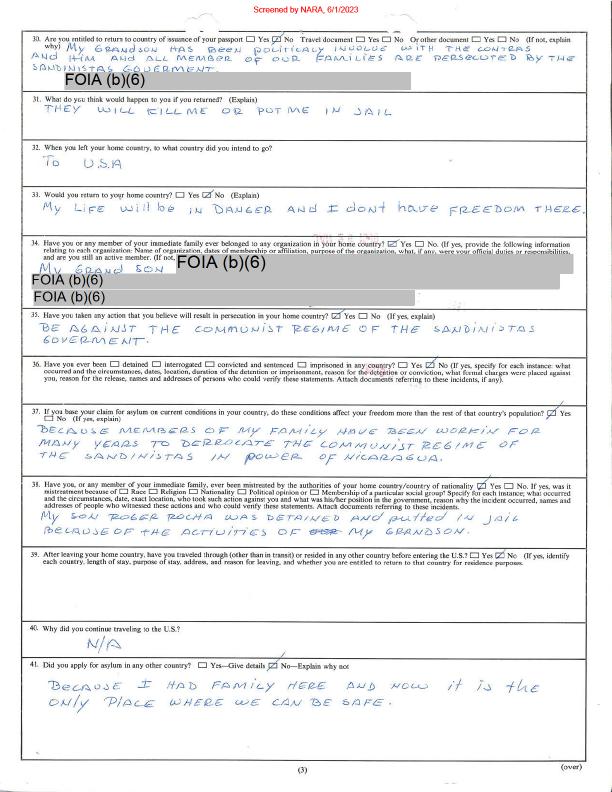 Screened by NARA, 6/1/2023
30. Are you entitled to return to country of issuance of your passport ☐ Yes ☑ No Travel document ☐ Yes ☐ No Or other document ☐ Yes ☐ No (If not, explain
why) MY GRANDSON HAS BEEN POLITICALY INVOLUE WITH THE CONTRAS
AND HIM AND ALL MEMBER OF OUR FAMILIES ARE PERSECUTED BY THE
SANDINISTAS GOUERMENT.
FOIA (b)(6)
31. What do you think would happen to you if you returned? (Explain)
THEY WILL KILL ME OR PUT ME IN JAIL
32. When you left your home country, to what country did you intend to go?
TO U.S.A
33. Would you return to your home country? ☐ Yes ☑ No (Explain)
My LIFE will be IN DANGER AND I dont have FREEDOM THERE.
34. Have you or any member of your immediate family ever belonged to any organization in your home country? ☑ Yes ☐ No. (If yes, provide the following information
relating to each organization: Name of organization, dates of membership or affiliation, purpose of the organization, what, if any, were your official duties or responsibilities,
and are you still an active member. (If not,
MY GRAND SON FOIA (b)(6)
FOIA (b)(6)
FOIA (b)(6)
35. Have you taken any action that you believe will result in persecution in your home country? ☑ Yes ☐ No (If yes, explain)
BE AGAINST THE COMMUNIST REGIME OF THE SANDINISTAS
GOVERMENT.
36. Have you ever been ☐ detained ☐ interrogated ☐ convicted and sentenced ☐ imprisoned in any country? ☐ Yes ☑ No (If yes, specify for each instance: what
occurred and the circumstances, dates, location, duration of the detention or imprisonment, reason for the detention or conviction, what formal charges were placed against
you, reason for the release, names and addresses of persons who could verify these statements. Attach documents referring to these incidents, if any).
37. If you base your claim for asylum on current conditions in your country, do these conditions affect your freedom more than the rest of that country's population? ☑ Yes
☐ No (If yes, explain)
BECAUSE MEMBERS OF MY FAMILY HAVE BEEN WORKIN FOR
MANY YEARS TO DERROCATE THE COMMUNIST REGIME OF
THE SANDINISTAS IN POWER OF NICARAGUA.
38. Have you, or any member of your immediate family, ever been mistreated by the authorities of your home country/country of nationality ☑ Yes ☐ No. If yes, was it
mistreatment because of ☐ Race ☐ Religion ☐ Nationality ☐ Political opinion or ☐ Membership of a particular social group? Specify for each instance; what occurred
and the circumstances, date, exact location, who took such action against you and what was his/her position in the government, reason why the incident occurred, names and
addresses of people who witnessed these actions and who could verify these statements. Attach documents referring to these incidents.
MY SON ROGER ROCHA WAS DETAINED AND putted IN JAIL
BECAUSE OF THE ACTIVITIES OF MY GRANDSON.
39. After leaving your home country, have you traveled through (other than in transit) or resided in any other country before entering the U.S.? ☐ Yes ☑ No (If yes, identify
each country, length of stay, purpose of stay, address, and reason for leaving, and whether you are entitled to return to that country for residence purposes.
40. Why did you continue traveling to the U.S.?
N/A
41. Did you apply for asylum in any other country? ☐ Yes—Give details ☑ No—Explain why not
BECAUSE I HAD FAMILY HERE AND NOW it IS the
ONLY PLACE WHERE WE CAN BE SAFE.
(3)
(over)